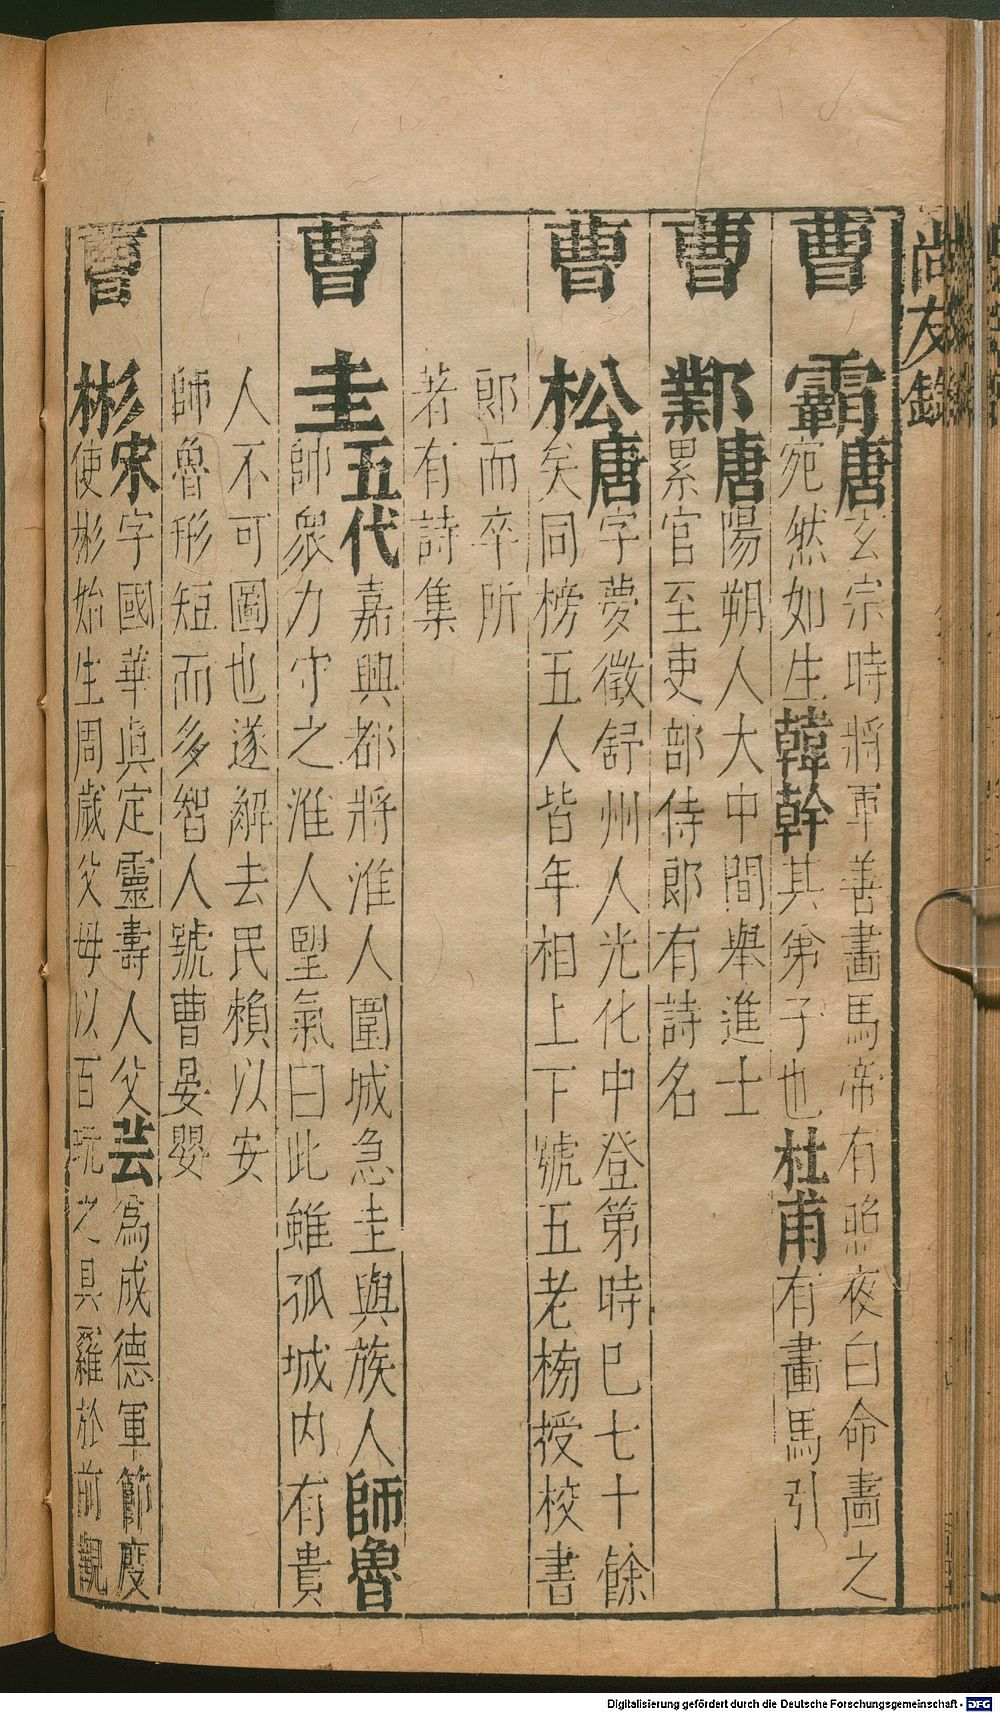 尚友錄
曹霸唐玄宗時將軍善畫馬帝有照夜白命畵之
宛然如生韓幹其弟子也杜甫有畫馬引
曹鄴唐陽朔人大中間舉進士
累官至吏部侍郎有詩名
曹松唐字夢徵舒州人光化中登第時巳七十餘
矣同榜五人皆年相上下號五老榜授校書
郎而卒所
著有詩集
曹圭五代嘉興都將淮人圍城急圭與族人師魯
帥衆力守之淮人望氣曰此雖孤城内有貴
人不可圖也遂解去民賴以安
師魯形短而多智人號曹晏嬰
曹彬宋字國華眞定靈壽人父芸爲成德軍節度
使彬始生周歲父母以百玩之具羅於前觀
Digitalisierung gefördert durch die Deutsche Forschungsgemeinschaft - DFG